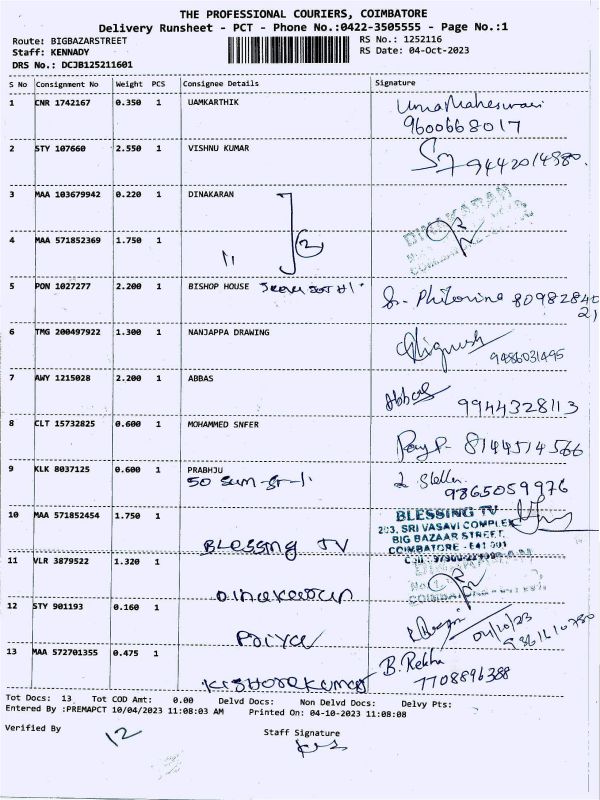 THE PROFESSIONAL COURIERS, COIMBATORE
Delivery Runsheet - PCT - Phone No.:0422-3505555 - Page No.:1
Route: BIGBAZARSTREET RS No.: 1252116
Staff: KENNADY RS Date: 04-Oct-2023
DRS No.: DCJB125211601
S No Consignment No Weight PCS Consignee Details Signature
1 CNR 1742167 0.350 1 UAMKARTHIK Uma Maheswari
9600668017
2 STY 107660 2.550 1 VISHNU KUMAR 9442014980.
3 MAA 103679942 0.220 1 DINAKARAN DINAKARAN
4 MAA 571852369 1.750 1 11 2
5 PON 1027277 2.200 1 BISHOP HOUSE Sr. Philomina
6 TMG 200497922 1.300 1 NANJAPPA DRAWING
9486031495
7 AWY 1215028 2.200 1 ABBAS Abbas
9944328113
8 CLT 15732825 0.600 1 MOHAMMED SNFER 8144514566
9 KLK 8037125 0.600 1 PRABHJU Stella
9865059976
10 MAA 571852454 1.750 1 BLESSING TV
BLESSING TV
203, SRI VASAVI COMPLEX
BIG BAZAAR STREET,
COIMBATORE - 641 001
11 VLR 3879522 1.320 1 Dinakaran
DINAKARAN
12 STY 901193 0.160 1 Priya
04/10/23
13 MAA 572701355 0.475 1 Kishorekumar B. Rekha
7708896388
Tot Docs: 13 Tot COD Amt: 0.00 Delvd Docs: Non Delvd Docs: Delvy Pts:
Entered By :PREMAPCT 10/04/2023 11:08:03 AM Printed On: 04-10-2023 11:08:08
Verified By 12 Staff Signature